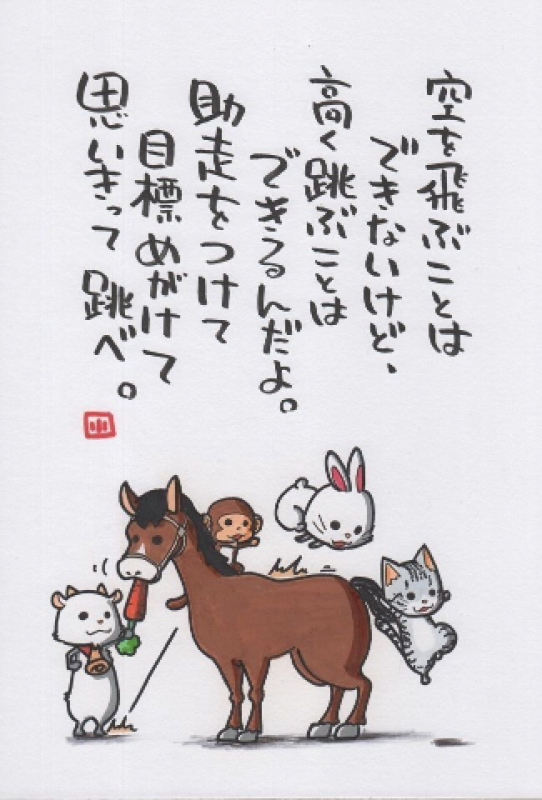 空を飛ぶことは
できないけど、
高く跳ぶことは
できるんだよ。
助走をつけて
目標めがけて
思いきって跳べ。